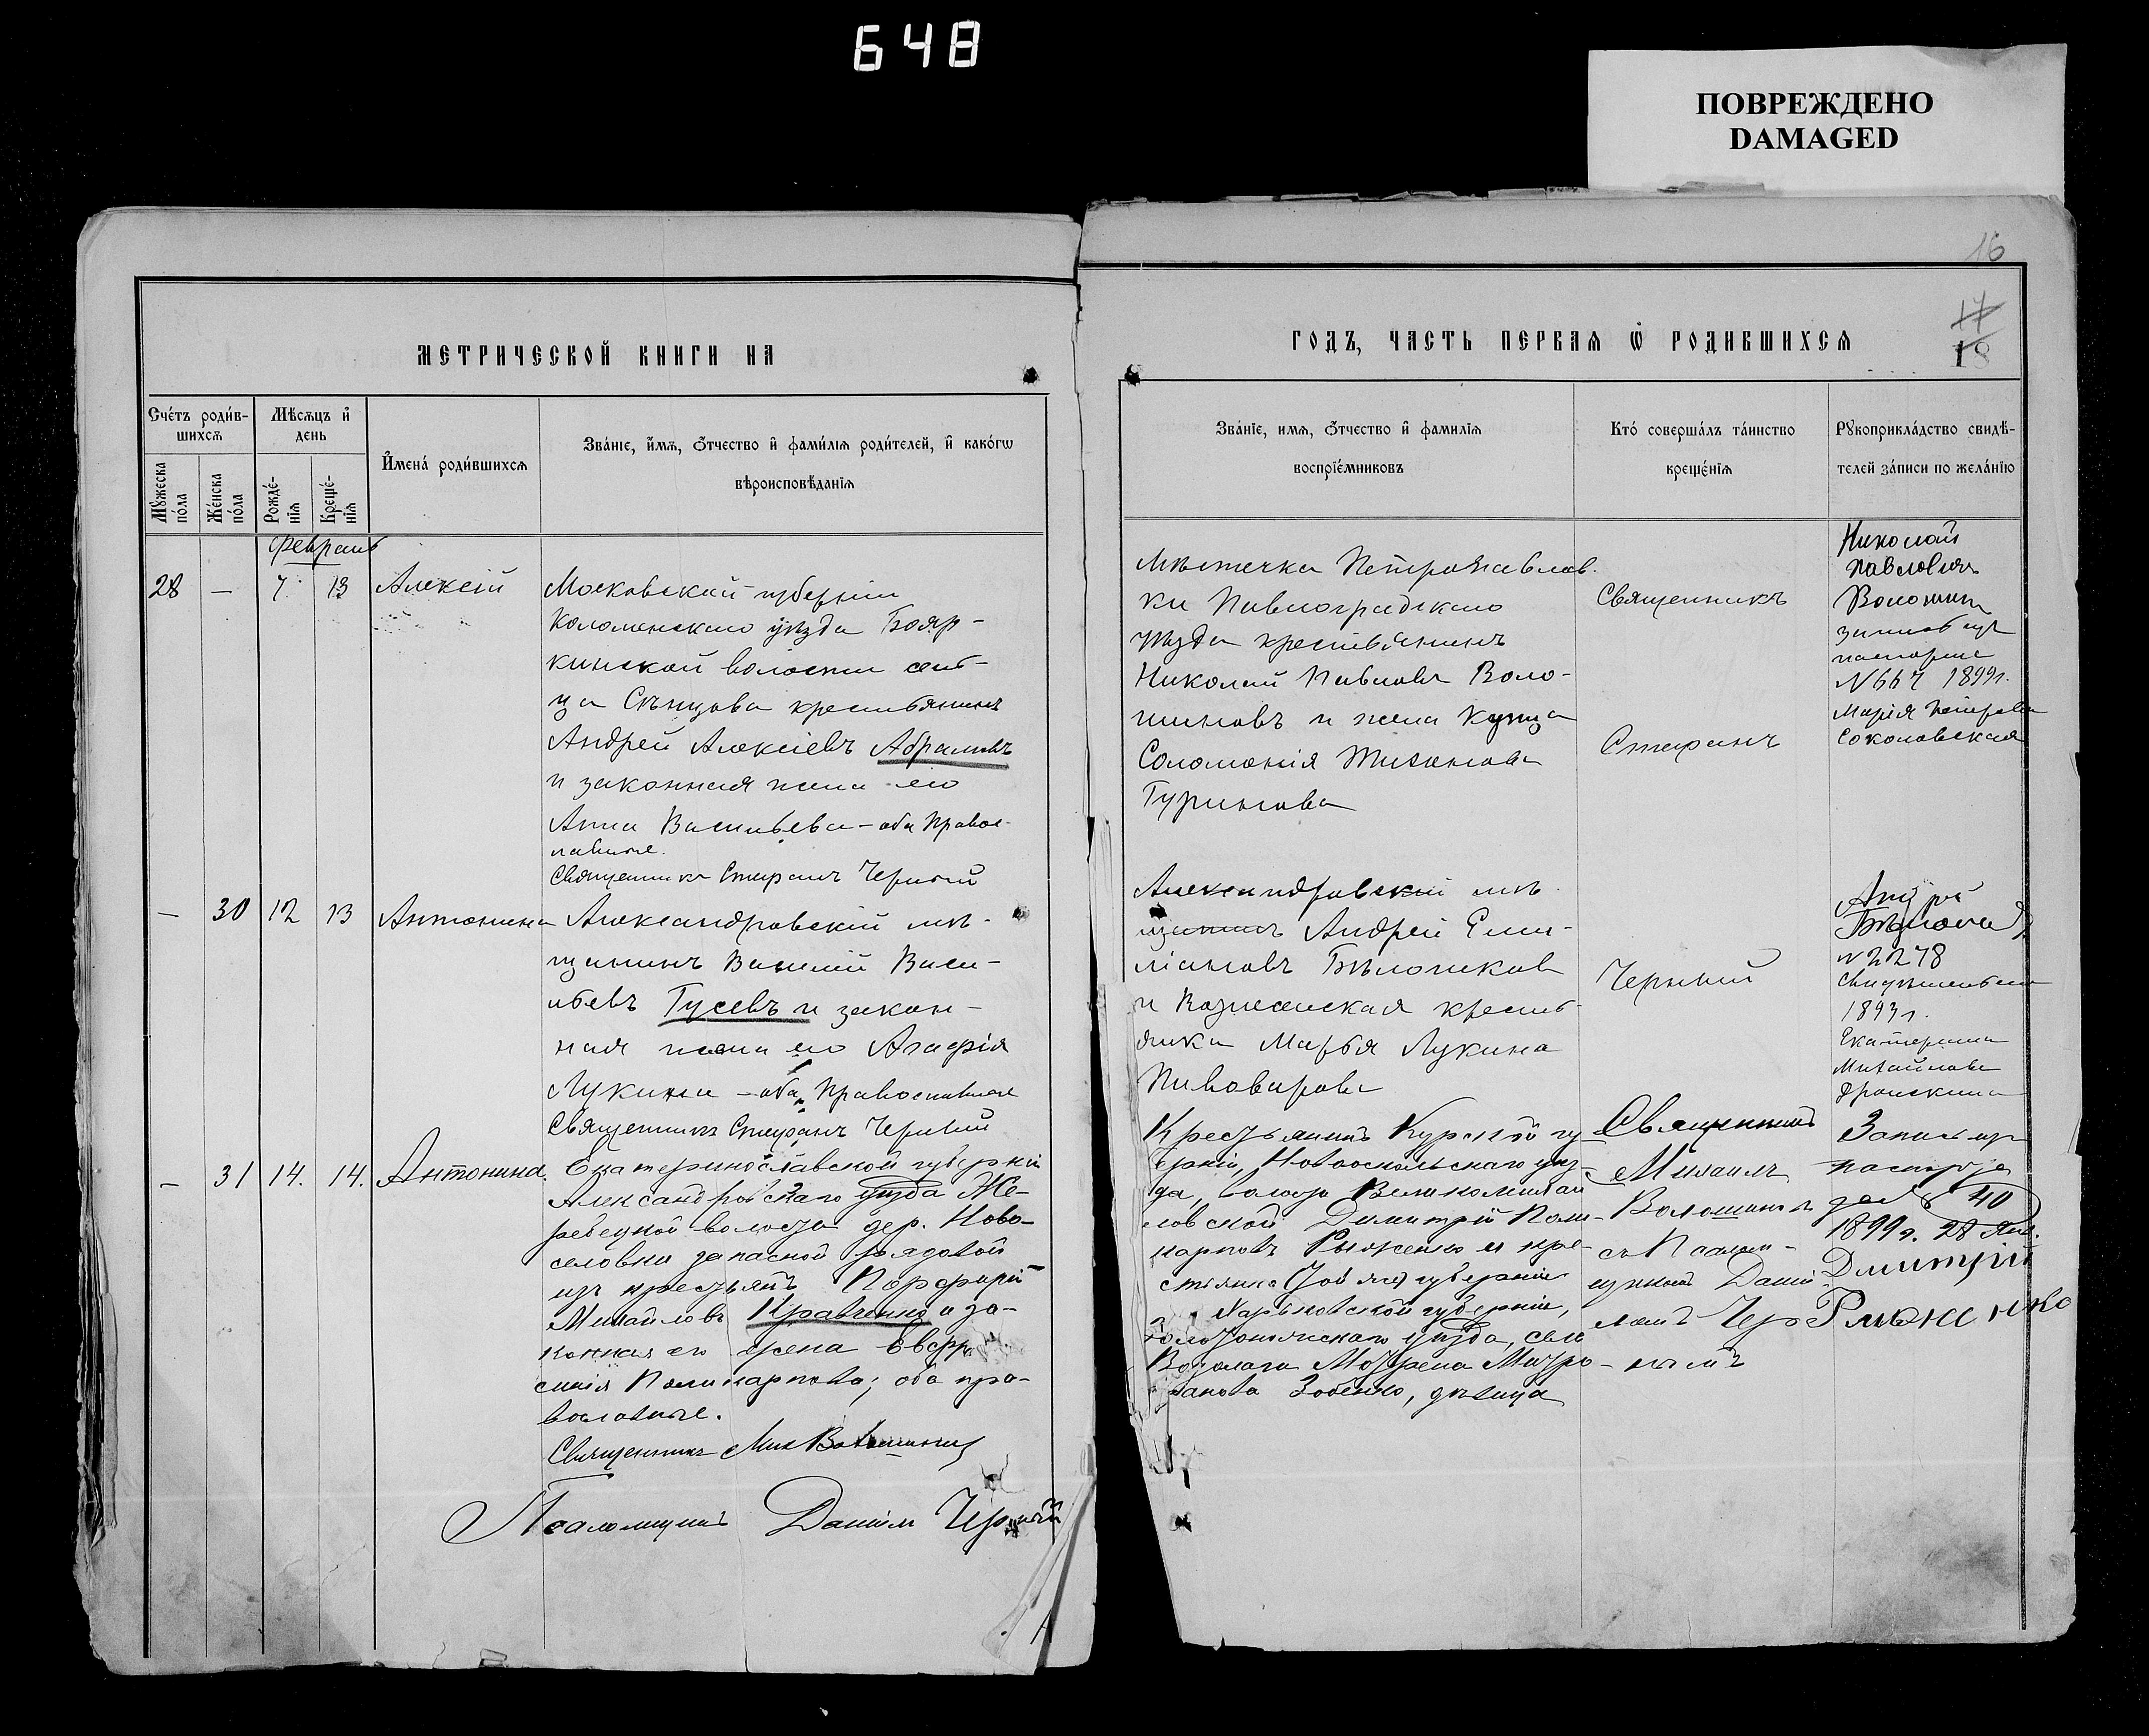 648
ПОВРЕЖДЕНО
DAMAGED
16
МЕТРИЧЕСКОЙ КНИГИ НА
ГОДЪ, ЧАСТЬ ПЕРВАѦ Ѿ РОДИВШИХСѦ
17
18
Счéтъ роди́в-
шихсѧ
Мѣсѧцъ и҆
день
И҆мена́ роди́вшихсѧ
Зва́нїе, и҆́мѧ, ѻ҆́тчество и҆ фами́лїѧ роди́телей, и҆ како́гѡ
вѣроисповѣ́данїѧ
Мꙋ́жеска
по́ла
Же́нска
по́ла
Рожде́-
нїѧ
Креще́-
нїѧ
Зва́нїе, имѧ, ѻ҆́тчество и҆ фамилїѧ
воспрїе́мниковъ
Кто́ соверша́лъ та́инство
креще́нїѧ
Рꙋкоприкла́дство свидѣ́-
телей за́писи по жела́нїю
Февраль
28 — 7. 13 Алексій
Московской губерніи
Коломенскаго уѣзда Бояр-
кинской волости сель-
ца Сѣнцова крестьянинъ
Андрей Алексіевъ Абрамовъ
и законная жена его
Анна Васильева – оба правос-
лавные.
Священникъ Стефанъ Черный
Мѣстечка Петропавлов-
ки Павлоградскаго
уѣзда крестьянинъ
Николай Павловъ Воло-
шиновъ и жена Купца
Соломонія Тиханова
Гуринова
Священникъ
Стефанъ
Николай
Павловичъ
Волошин
№ 667 1899г.
Марія Петрова
Соколовская
— 30 12 13 Антонина
Александровскій мѣ-
щанинъ Василій Васи-
льевъ Гусевъ и закон-
ная жена его Агафія
Лукина – оба Православные
Священникъ Стефанъ Черный
Александровскій мѣ-
щанинъ Андрей Еми-
ліановъ Бѣлоликов
и Вознесенская кресть-
янка Марья Лукина
Пивоварова
Черный
Андрей
№ 2278
1893г.
Екатерина
Михайлова
— 31 14. 14. Антонина.
Екатеринославской губерніи
Александровскаго уѣзда Же-
ребецкой волости дер. Ново-
селовки запасной рядовой
изъ крестьянъ Порфирій
Михайловъ Кравченко и за-
конная его жена Евфро
синія Поликарпова; оба пра-
вославные.
Священникъ Мих Волошинов
Псаломщикъ Даніилъ Черный
Крестьянинъ Курской гу-
берніи, Новооскольскаго уѣз-
да, волости Великомихай
ловской Димитрій Поли-
карповъ Рыженко и кре-
стьянка губерніи
Харьковской губерніи,
уѣзда, села
Водолаги Матрена Митро-
фанова Зобенко, дѣвица
Священникъ
Михаилъ
Волошиновъ
съ Псалом-
щикомъ Даніи-
ломъ Чер
нымъ
Запись из
паспорта
за № 40
1899 г. 28 Янв.
Дмитрій
Рыженико